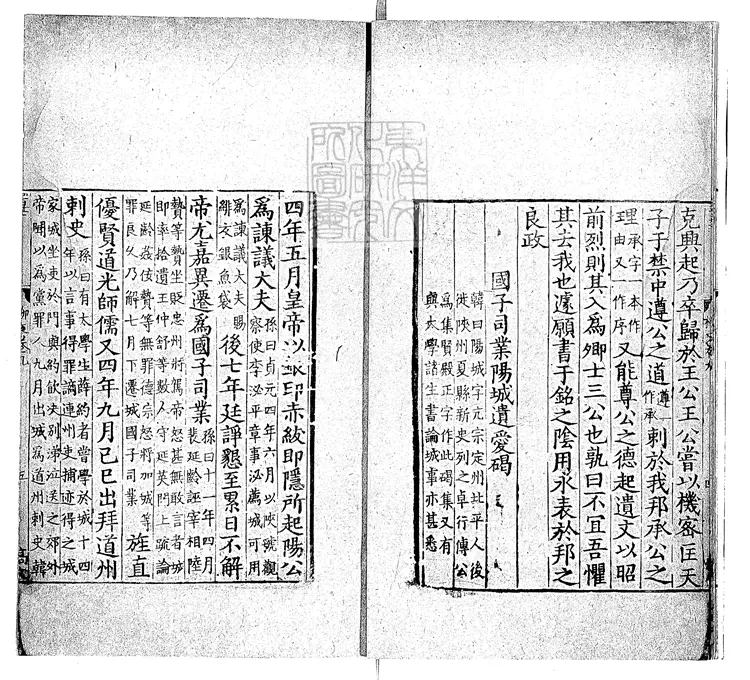 克興起乃卒歸於王公王公嘗以機密匡天
子于禁中遵公之道遵一作承刺於我邦承公之
理承字一本作由又一作序又能尊公之德起遺文以昭
前烈則其入爲卿士三公也孰曰不宜吾懼
其去我也遽願書于銘之陰用永表於邦之
良政
國子司業陽城遺愛碣
韓曰陽城字亢宗定州北平人後
徙陝州夏縣新史列之卓行傳公
爲集賢殿正字作此碣集又有
與太學諸生書論城事亦甚悉
四年五月皇帝以銀印赤紱即隱所起陽公
爲諫議大夫孫曰貞元四年六月以陜虢觀察使李泌平章事泌薦城可用
爲諫議大夫賜緋衣銀魚袋後七年廷諍懇至累日不解
帝尤嘉異遷爲國子司業孫曰十一年四月裴延齡誣宰相陸
贄等贄坐貶忠州將篤帝怒甚無敢言者城即率拾遺王仲舒等數人守延英門上疏論
延齡姦佞贄等無罪德宗怒將加城等罪良乆乃解七月下遷城國子司業旌直
優賢道光師儒又四年九月己巳出拜道州
刺史孫曰有太學生薛約者嘗學於城十四年以言事得罪謫連州吏捕迹得之城
家城坐吏於門與約飲决別涕泣送之郊外帝聞以爲黨罪人九月出城爲道州刺史韓
五
東洋文化研究所圖書